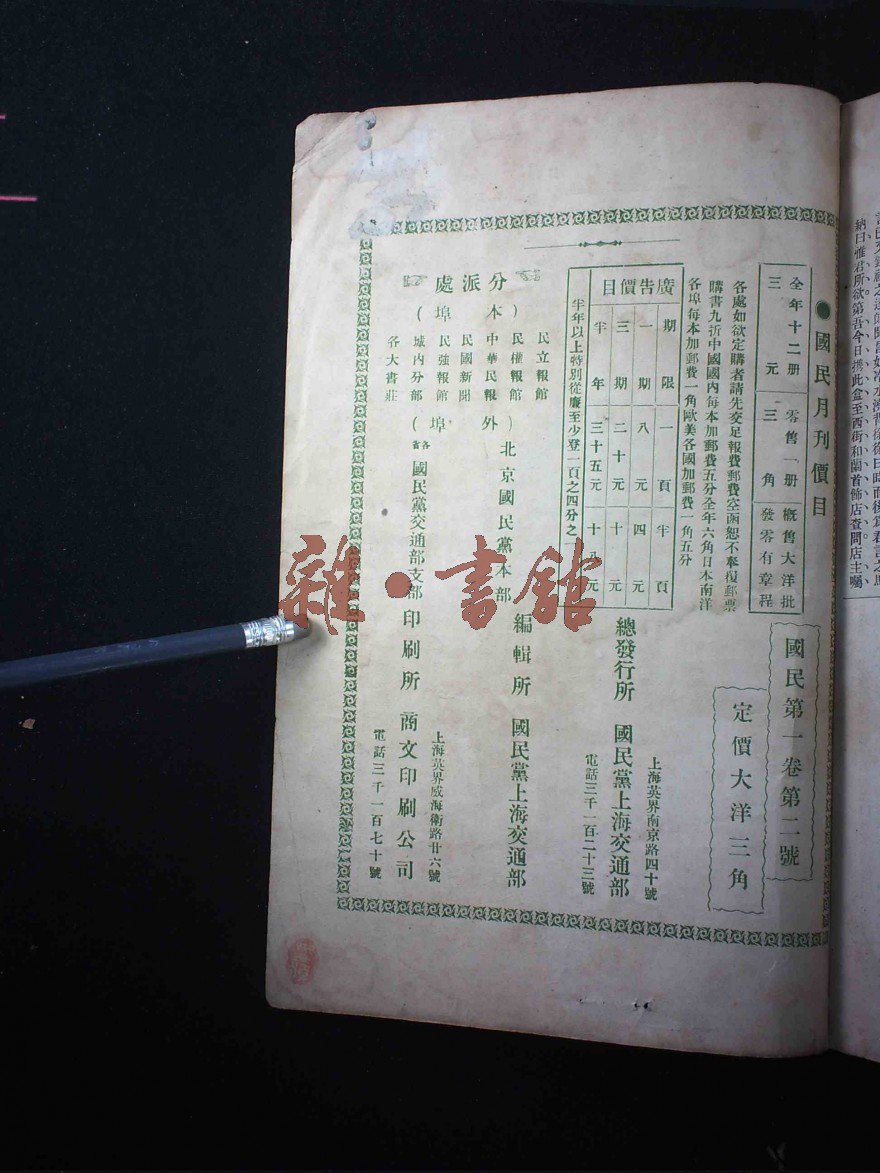 ●國民月刊價目
全年十二册 零售一册 概售大洋批
三元 三角 發零有章程
各處如欲定購者請先交足報費郵費空函恕不奉復郵票
購書九折中國國內每本加郵費五分全年六角日本南洋
各埠每本加郵費一角歐美各國加郵費一角五分
廣告價目
期限 一頁 半頁
一期 八元 四元
三期 二十元 十元
半年 三十五元 十八元
半年以上特別從廉至少登一頁之四分之一
分派處
(本埠)
民立報館
民權報館
中華民報
民國新聞
民強報館
城內分部
各大書莊
(外埠)
北京國民黨本部
各省國民黨交通部支部
國民第一卷第二號
定價大洋三角
上海英界南京路四十號
總發行所 國民黨上海交通部
電話三千一百二十三號
編輯所 國民黨上海交通部
上海英界威海衛路廿六號
印刷所 商文印刷公司
電話三千一百七十號
納曰雅君所欲第吾今日携此盒至西街和蘭首飾店查問店主囑
雜·書館